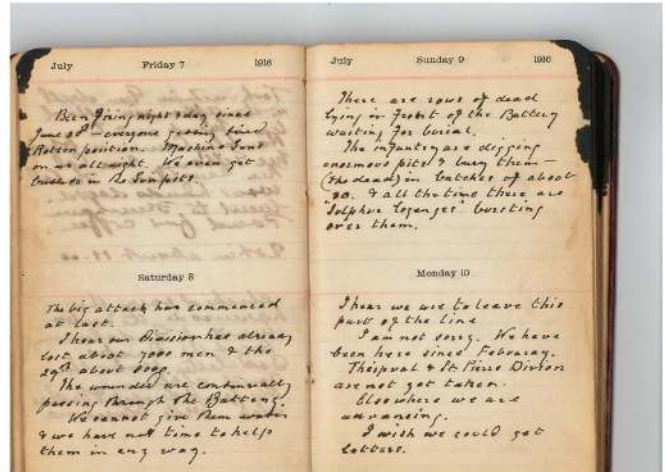 July Friday 7 1916
Been firing night & day since
June 28 — everyone getting tired
Rotten position. Machine Guns
on us all night. We even get
bullets in the Gun pits.
Saturday 8
The big attack has commenced
at last.
I hear our Division has already
lost about 7000 men & the
29th about 8000.
The wounded are continually
passing through the Battery.
We cannot give them water
& we have not time to help
them in any way.
July Sunday 9 1916
There are rows of dead
lying in front of the Battery
waiting for burial.
The infantry are digging
enormous pits & bury them —
(the dead) in batches of about
30. & all the time there are
"Sulphur Lozenges" bursting
over them.
Monday 10
I hear we are to leave this
part of the line
I am not sorry. We have
been here since February.
Thiepval & St. Pierre Divion
are not yet taken.
Elsewhere we are
advancing.
I wish we could get
letters.